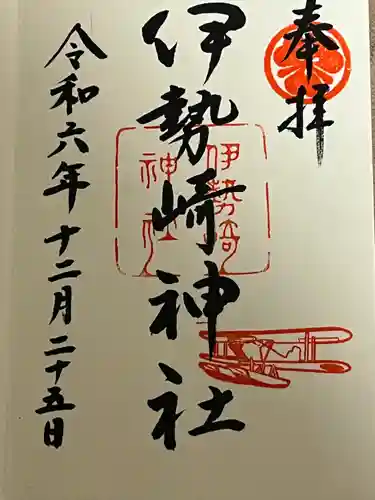 奉拝
伊勢崎神社
伊勢崎
神社
令和六年十二月二十五日